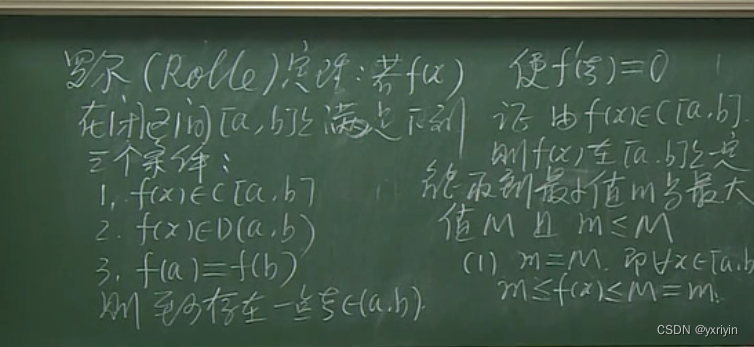 罗尔(Rolle)定理:若f(x)
在闭区间[a,b]上满足下列
三个条件:
1. f(x)∈C[a,b]
2. f(x)∈D(a,b)
3. f(a)=f(b)
则至少存在一点ξ∈(a,b)
使f'(ξ)=0
证 由f(x)∈C[a,b].
则f(x)在[a.b]上一定
能取到最小值m与最大
值M 且 m≤M
(1) m=M. 即∀x∈[a,b
m≤f(x)≤M=m.
CSDN @yxriyin